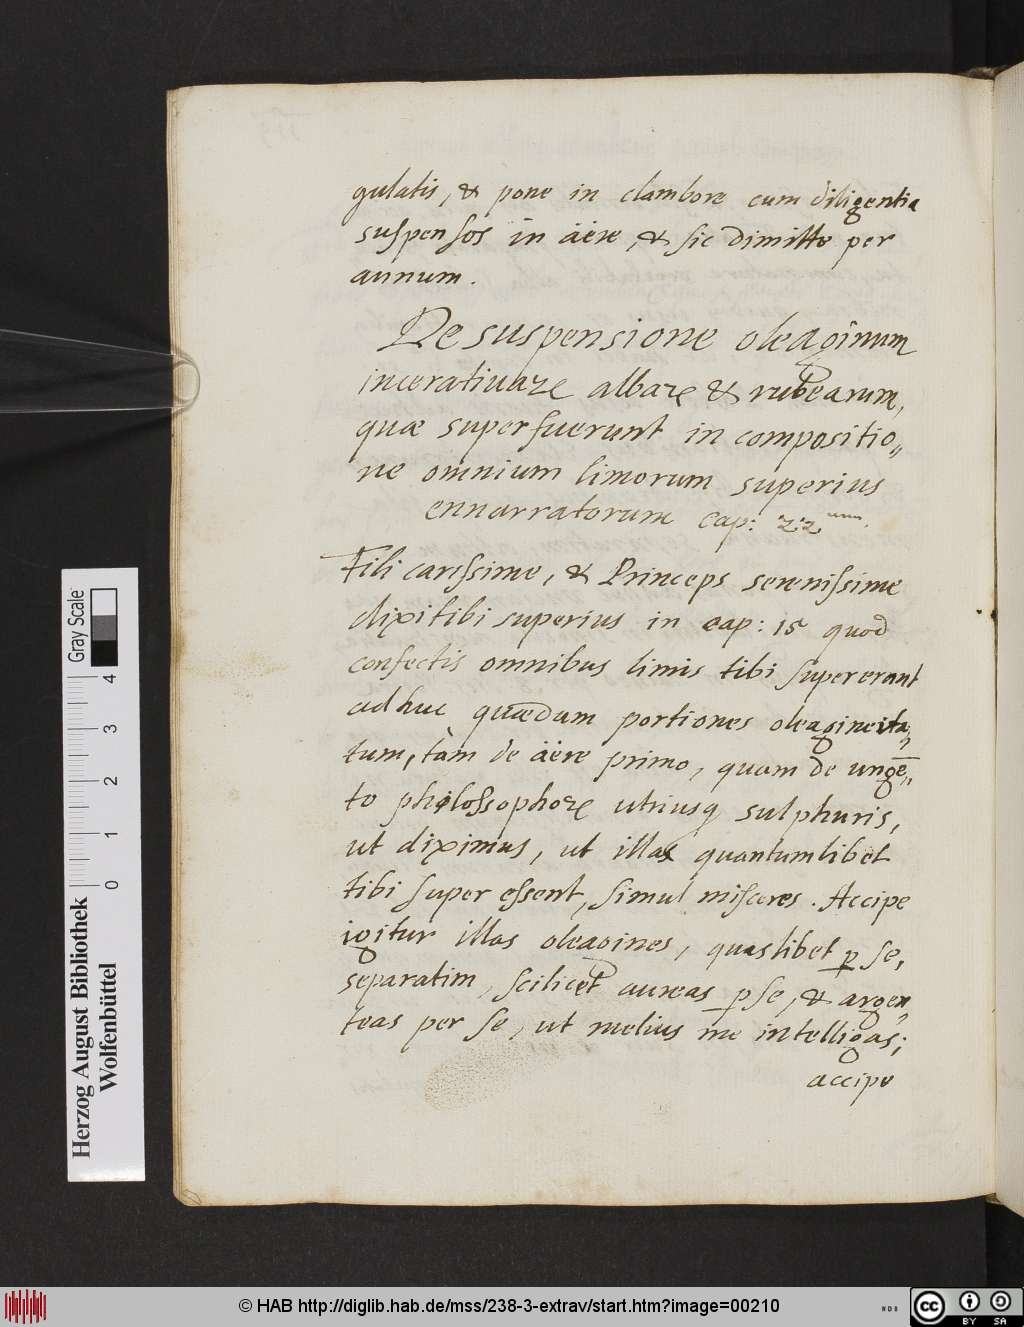 gulatis, & pone in clambore cum diligentia
suspensos in aëre, & sic dimitte per
annum.
De suspensione oleaginum
incerativaꝝ albaꝝ & rubearum,
quæ superfuerunt in compositio„
ne omnium limorum superius
ennarratorum cap: 22um.
Fili carissime, & Princeps serenissime
dixi tibi superius in cap: 15 quod
confectis omnibus limis tibi supererant
adhuc quædam portiones oleagineita„
tum, tàm de aëre primo, quam de ungē„
to philossophoꝝ utriusq sulphuris,
ut diximus, ut illas quantumlibet
tibi super essent, simul misceres. Accipe
igitur illas oleagines, quaslibet ꝑ se,
separatim, scilicet aureas ꝑ se, & argen„
teas per se, ut melius me intelligas;
accipe
Herzog August Bibliothek
Wolfenbüttel
Gray Scale
0 1 2 3 4
© HAB http://diglib.hab.de/mss/238-3-extrav/start.htm?image=00210
cc BY SA